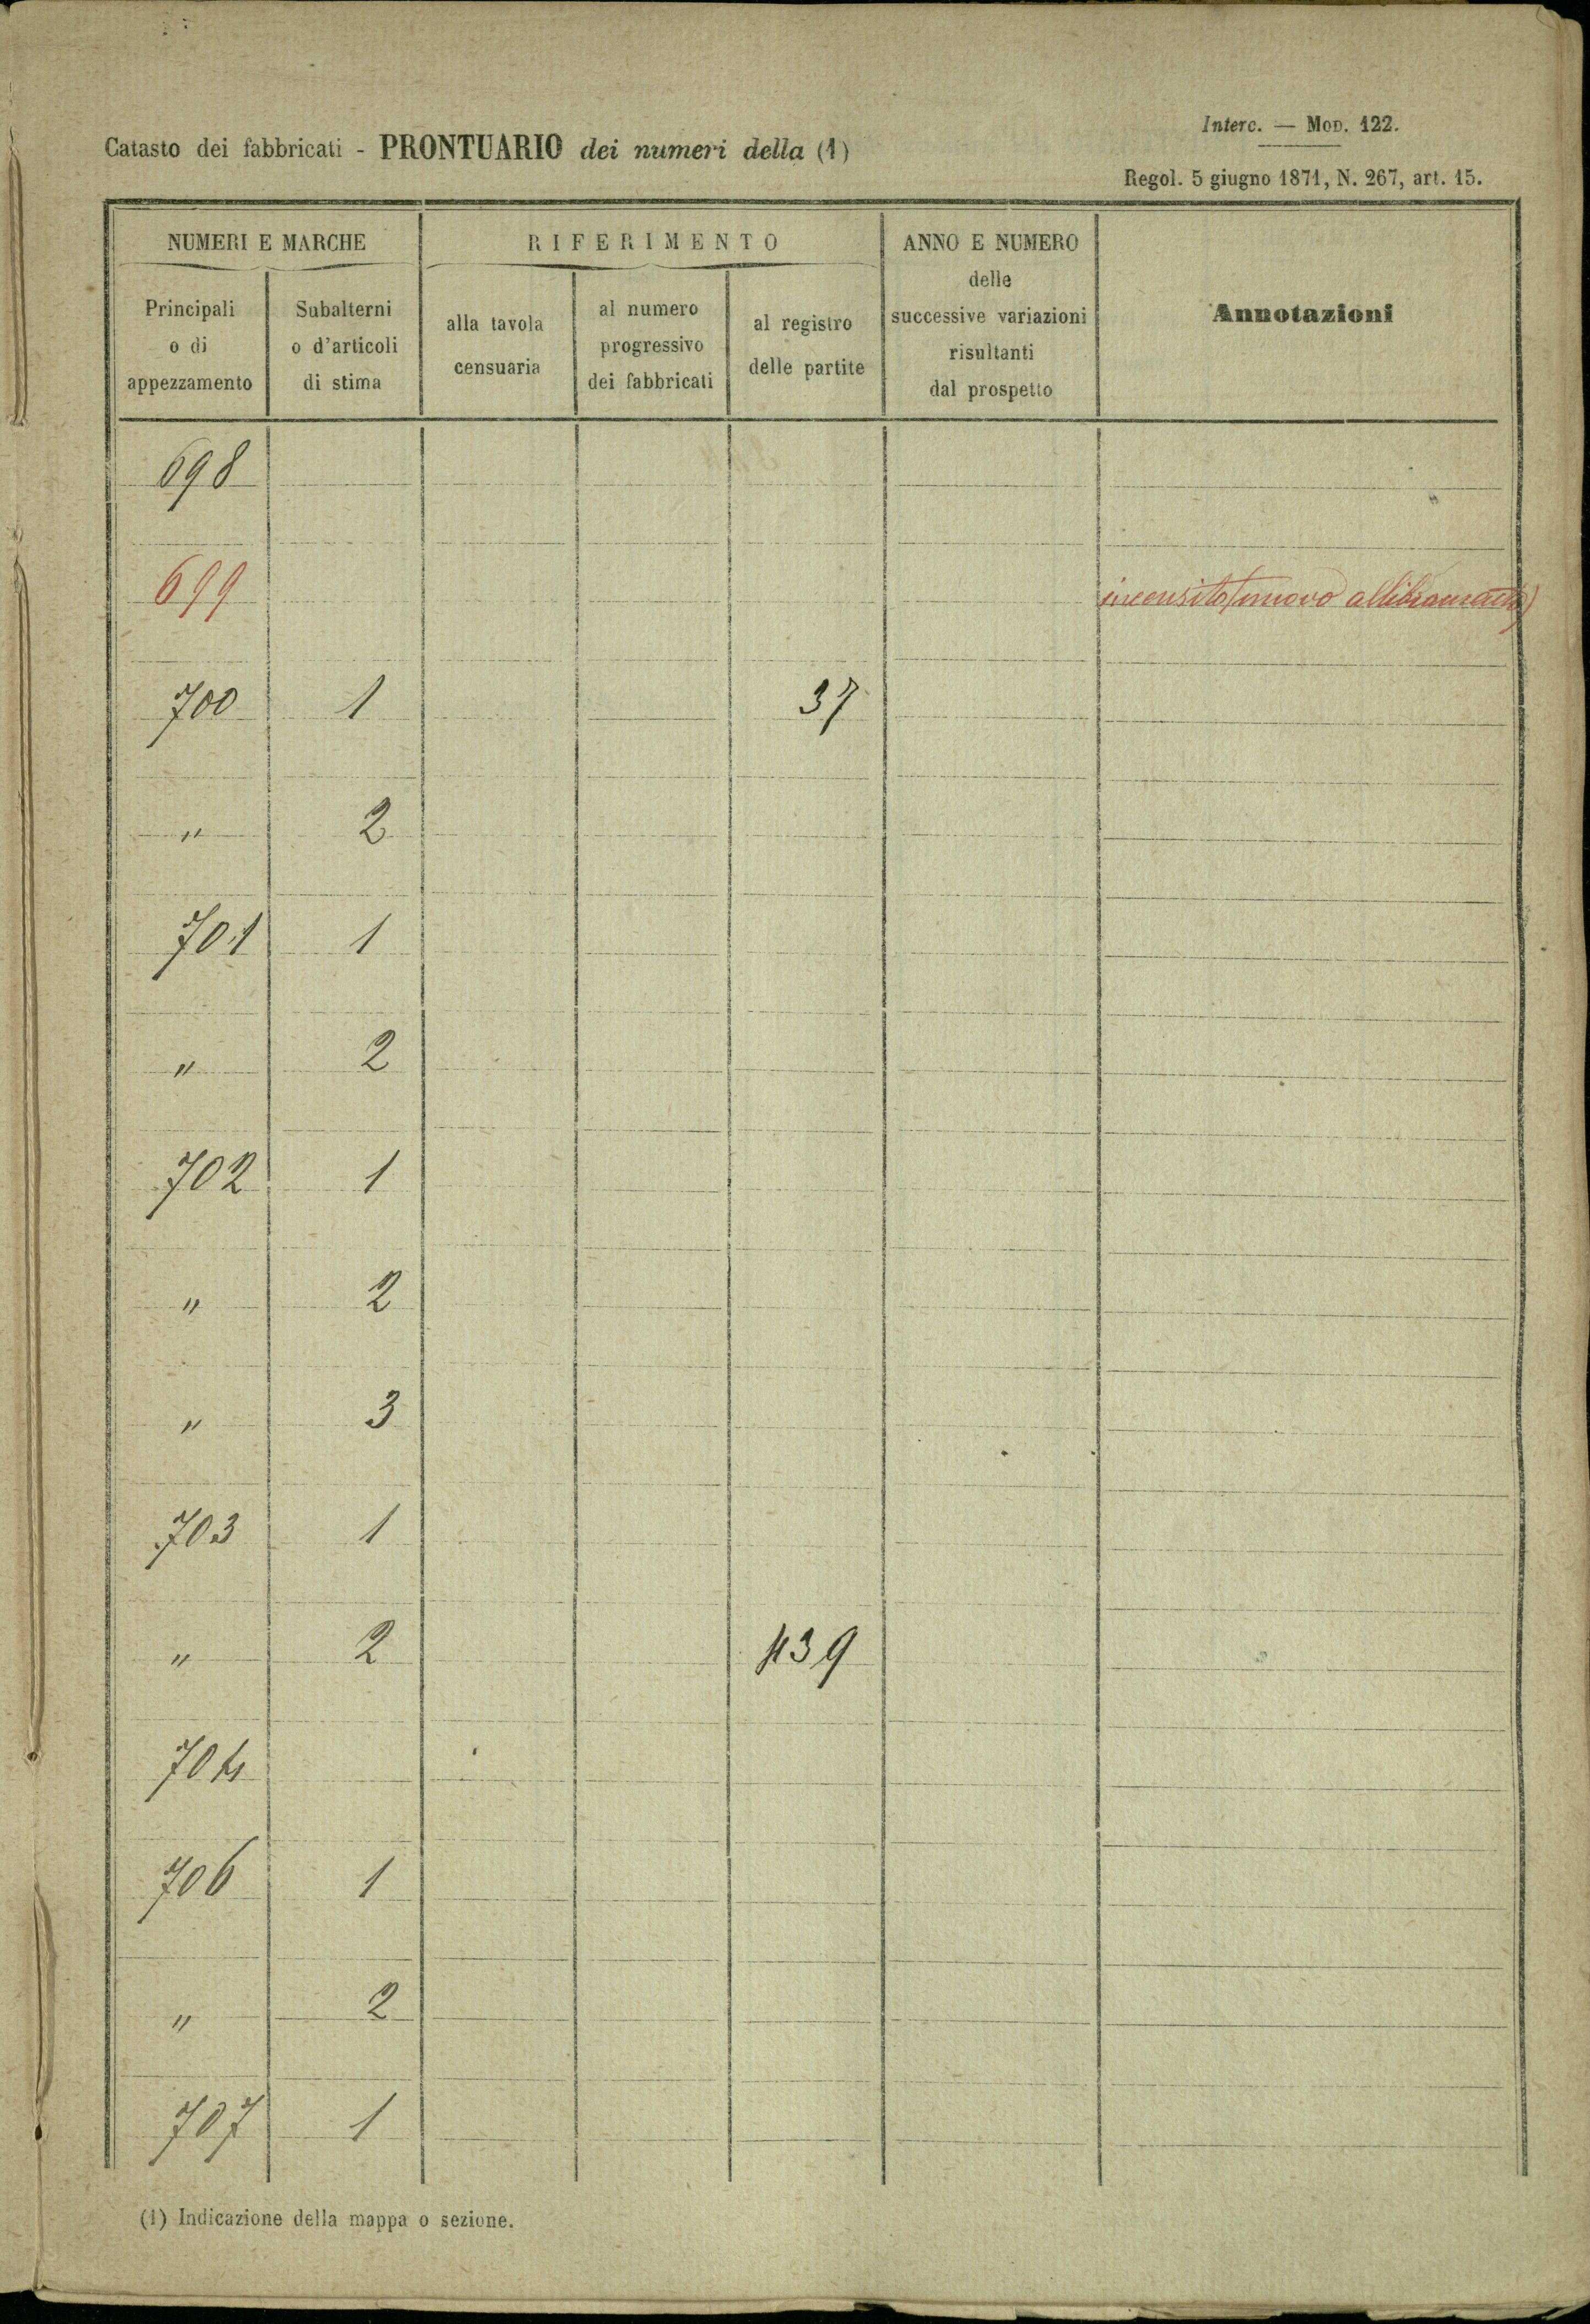 Interc. — Mod. 122.
Catasto dei fabbricati - PRONTUARIO dei numeri della (1)
Regol. 5 giugno 1871, N. 267, art. 15.
NUMERI E MARCHE
RIFERIMENTO
ANNO E NUMERO
delle
successive variazioni
risultanti
dal prospetto
Annotazioni
Principali
o di
appezzamento
Subalterni
o d'articoli
di stima
alla tavola
censuaria
al numero
progressivo
dei fabbricati
al registro
delle partite
698
699 incensito (nuovo allibramento)
700 1 37
" 2
701 1
" 2
702 1
" 2
" 3
703 1
" 2 439
704
706 1
" 2
707 1
(1) Indicazione della mappa o sezione.